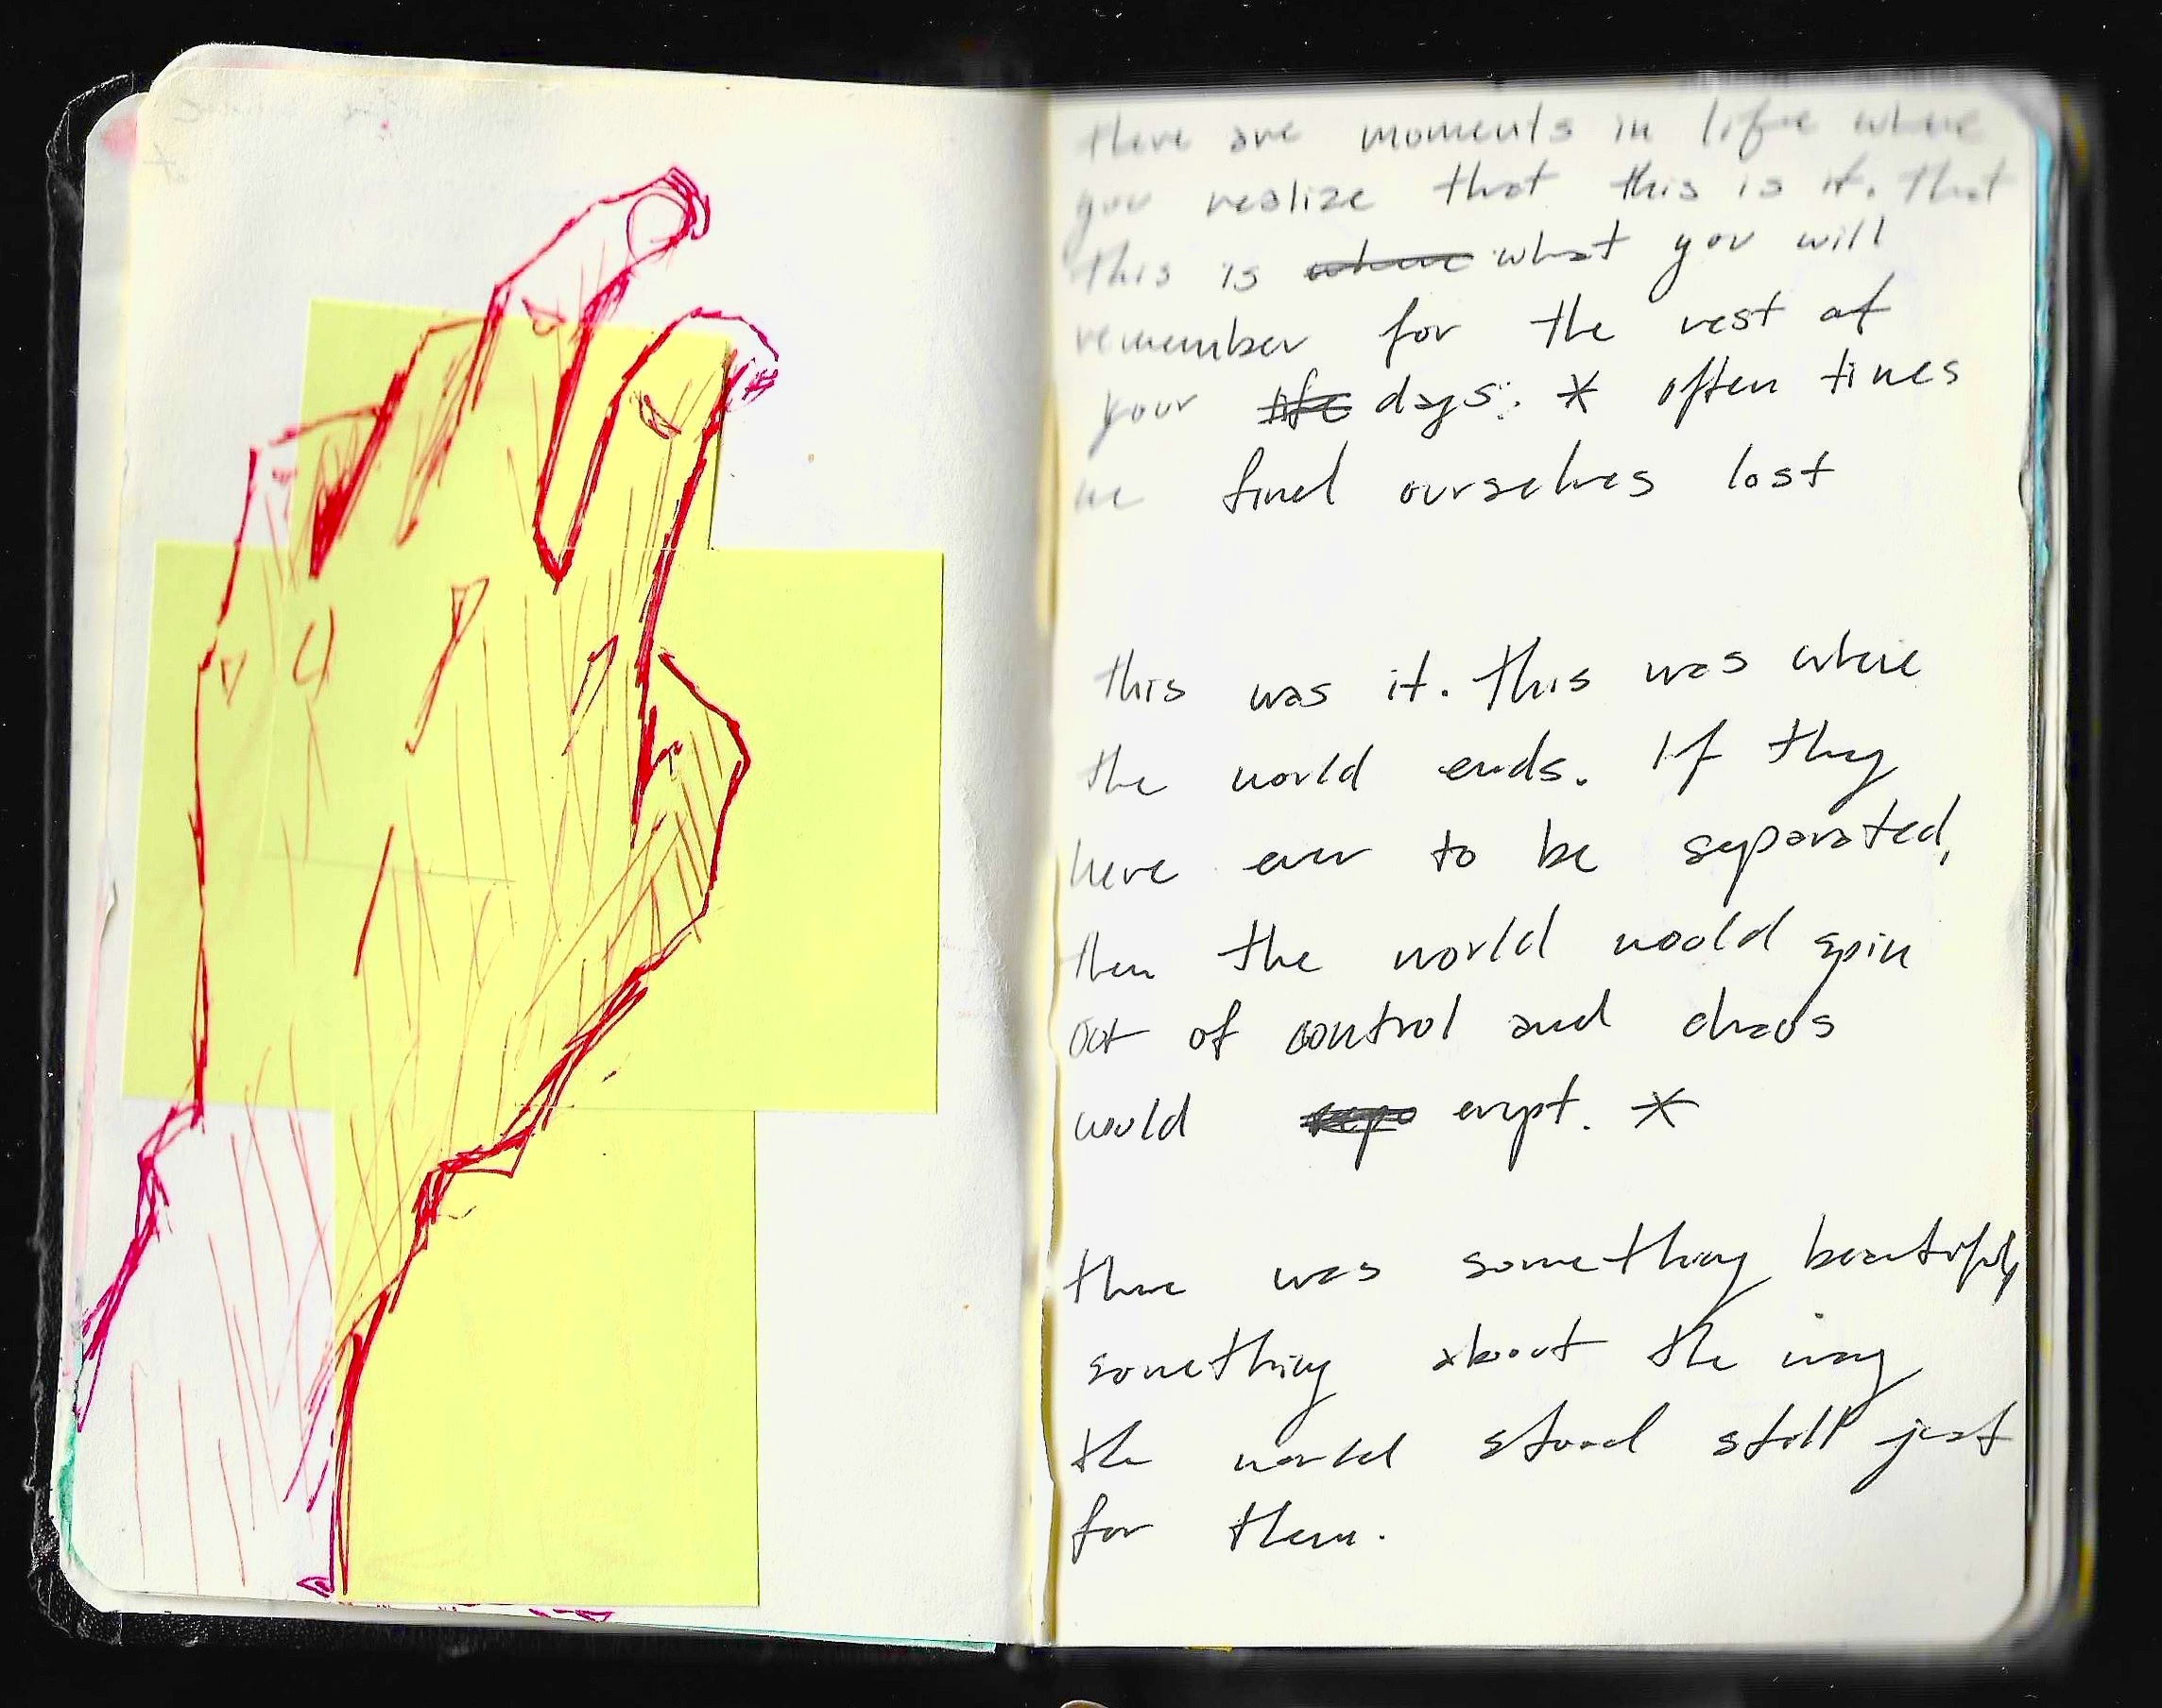 there are moments in life where
you realize that this is it. that
this is where what you will
remember for the rest of
your life days. * often times
we find ourselves lost
this was it. this was where
the world ends. If they
were ever to be separated,
then the world would spin
out of control and chaos
would erupt. *
there was something beautiful,
something about the way
the world stood still just
for them.